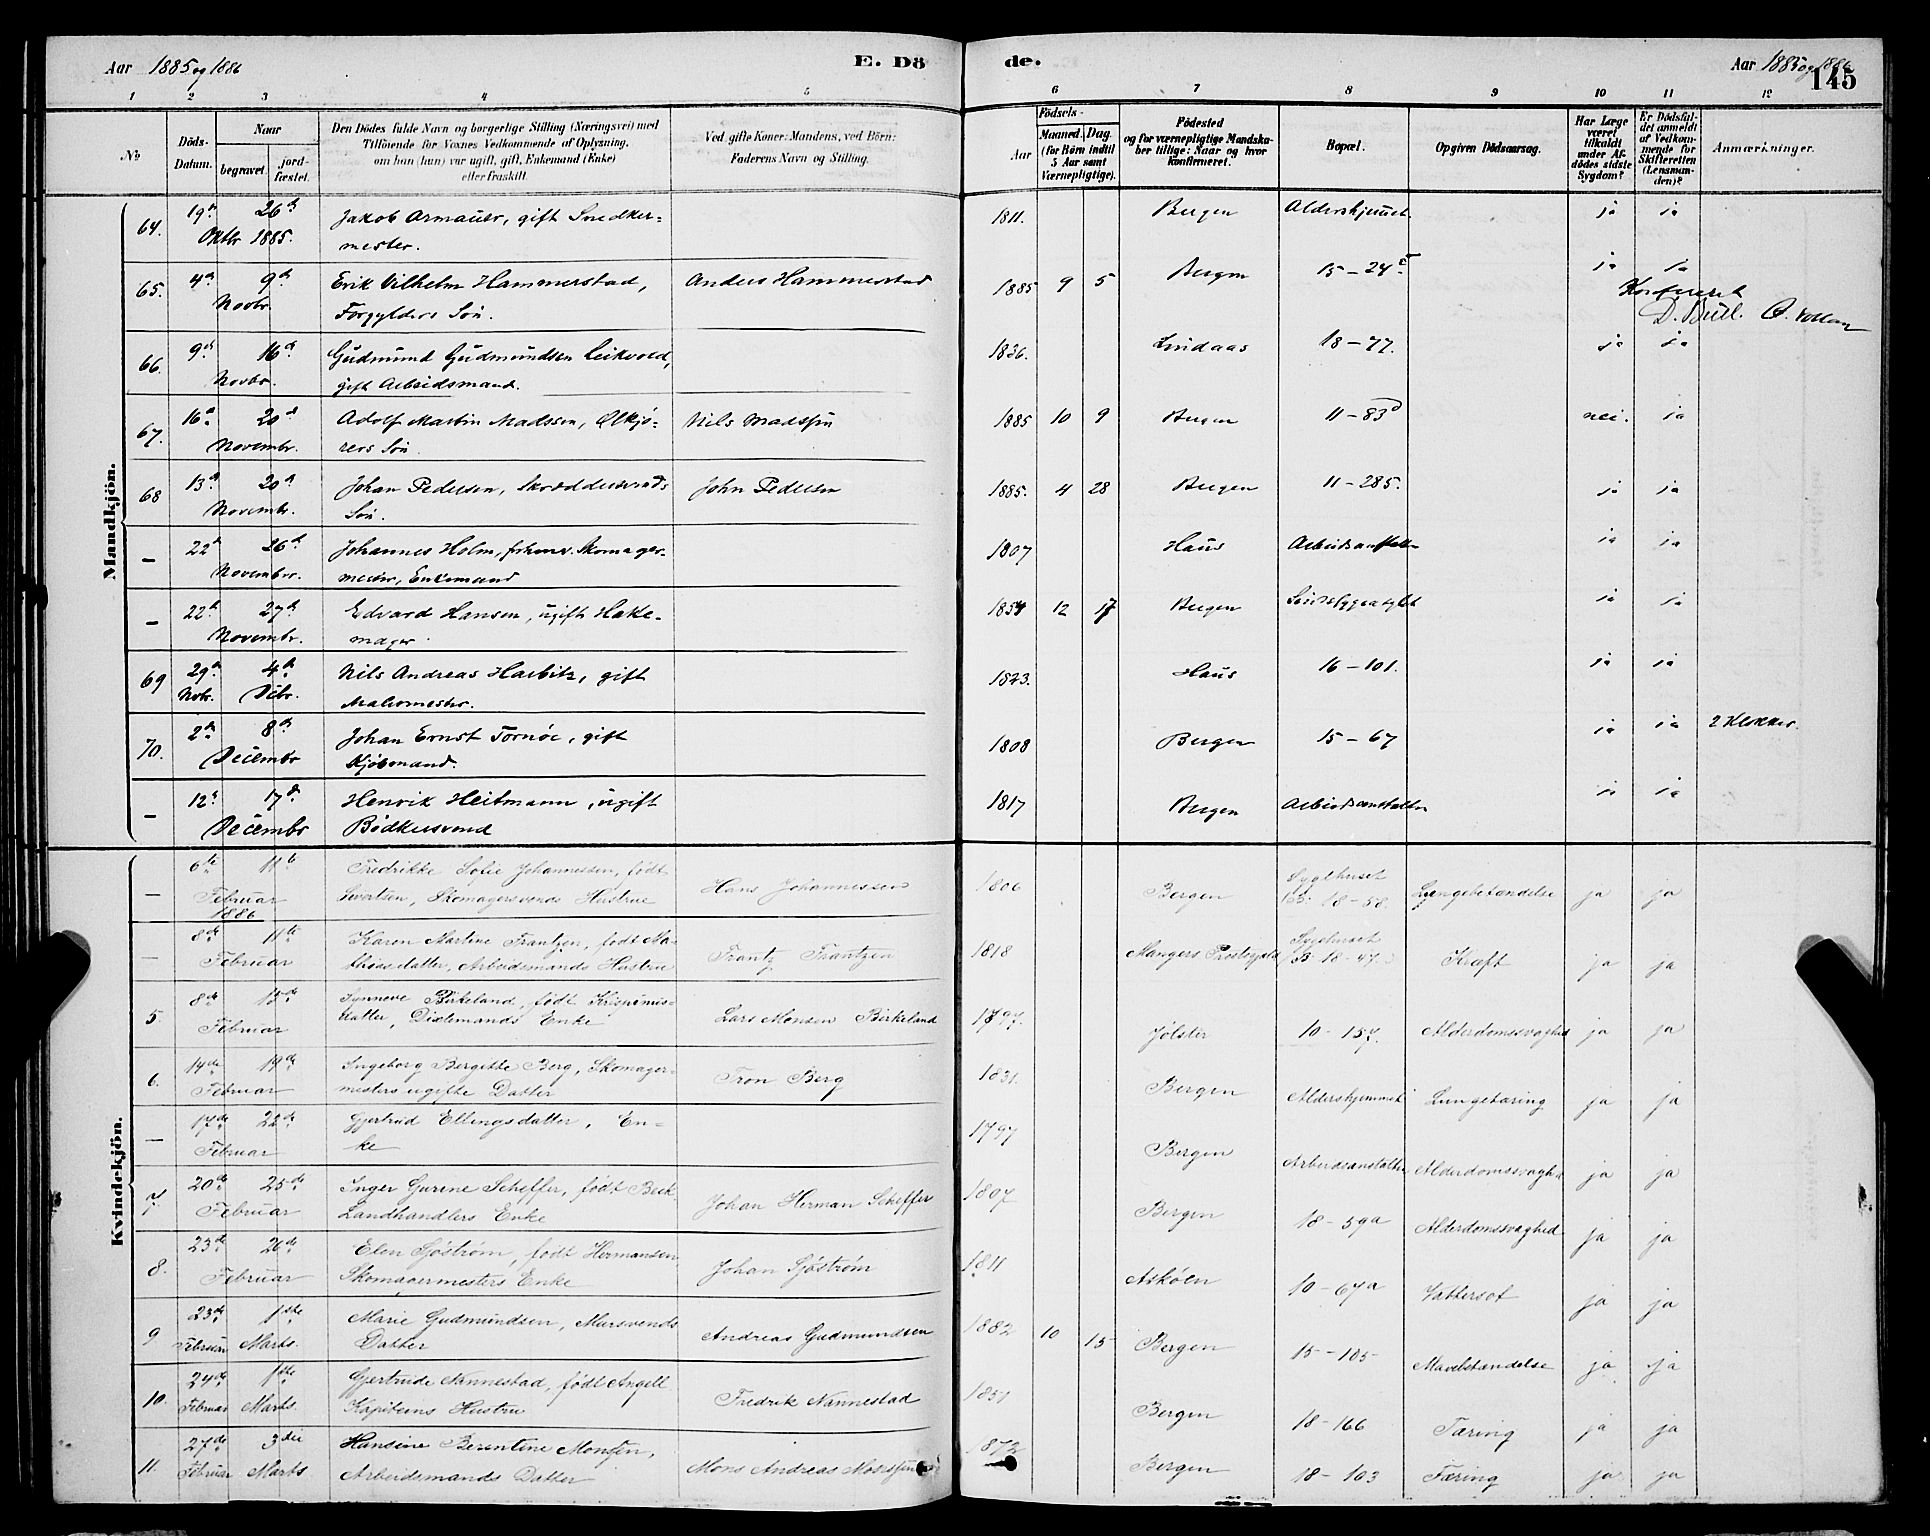 Aar 1885 og 1886 E. Dö de. Aar 1885 og 1886 145
1 2 3 4 5 6 7 8 9 10 11 12
No Döds-Datum. Naar begravet. jordfæstet. Den Dödes fulde Navn og borgerlige Stilling (Næringsvei) med Tilföiende for Voxnes Vedkommende af Oplysning, om han (hun) var ugift, gift, Enkemand (Enke) eller fraskilt. Ved gifte Koner: Mandens, ved Börn: Faderens Navn og Stilling. Födsels- Aar Maaned. Dag. (for Börn indtil 5 Aar samt Værnepligtige). Födested og for værnepligtige Mandskaber tillige: Naar og hvor konfirmeret. Bopæl. Opgiven Dödsaarsag. Har Læge været tilkaldt under Afdödes sidste Sygdom? Er Dödsfaldet anmeldt af Vedkommende for Skifteretten (Lensmanden)? Anmærkninger.
Mandkjön.
64. 19de 26de Jakob Armauer, gift Snedker- 1811. Bergen Aldershjemmet ja ja
Oktbr 1885. mester.
65. 4de 9de Erik Vilhelm Hammerstad, Anders Hammerstad 1885 9 5 Bergen 15 – 24 ja ja
Novbr. Forgylders Sön. Konfereret
D. Bull.
66. 9de 16de Gudmund Gudmundsen Leikvold, 1836. Lindaas 18 – 77. ja ja
Novbr. gift Arbeidsmand.
67. 16de 20de Adolf Martin Madssen, Ølkjö- Nils Madssen 1885 10 9 Bergen 11 – 83d nei. ja
Novembr. rers Sön.
68 13de 20de Johan Pedersen, Skræddersvends John Pedersen 1885. 4 28 Bergen 11 – 285. ja ja
Novembr. Sön.
– 22de 26de Johannes Holm, forhenv. Skomager- 1807 Haus Arbeidsanstalten ja ja
Novembr. mester, Enkemand
– 22de 27de Edvard Hansen, ugift Hake- 1854 12 17 Bergen ja ja
Novembr. mager.
69 29de 4de Nils Andreas Harbitz, gift 1823. Haus 16 – 101. ja ja
Novbr. Decbr. Malermester.
70. 2de 8de Johan Ernst Tornöe, gift 1808 Bergen 15 – 67 ja ja 2 Klokker.
Decembr Kjöbmand.
– 12te 17de Henrik Heitmann, ugift 1817 Bergen Arbeidsanstalten ja ja
Decembr Bödkersvend
Kvindekjön.
– 6te 11te Fredrikke Sofie Johannessen, födt Hans Johannessen 1806 Bergen Sygehuset Lungebetændelse ja ja
Februar Sivertsen, Skomagersvends Hustrue 18 – 58.
1886
– 8de 11te Karen Martine Frantzen, födt Ma- Frantz Frantzen 1818 Mangers Præstegjeld Sygehuset Kræft ja ja
Februar thiasdatter, Arbeidsmands Hustru B. 18 – 47.
5. 8de 15de Synneve Birkeland, födt Krispinus- Lars Monsen Birkeland 1797. Jölster 10 – 157. Alderdomssvaghed ja ja
Februar datter, Dixlemands Enke
6. 14de 19de Ingeborg Bergitte Berg, Skomager- Tron Berg 1831. Bergen Aldershjemmet Lungetæring ja ja
Februar mesters ugifte Datter
– 17de 22de Gjertrud Ellingsdatter, En- 1797 Bergen Arbeidsanstalten Alderdomssvaghed ja ja
Februar ke
7. 20de 25de Inger Gurine Scheffer, födt Beck Johan Herman Scheffer 1807 Bergen 18 – 59a Alderdomssvaghed ja ja
Februar Landhandlers Enke
8. 23de 26de Elen Sjöström, födt Hermansen Johan Sjöström 1811 Asköen 10 – 67a Vattersot ja ja
Februar Skomagermesters Enke
9 23de 1ste Marie Gudmundsen, Mursvends Andreas Gudmundsen 1882 10 15 Bergen 15 – 105 Mavebetændelse ja ja
Februar Marts. Datter
10. 24de 1ste Gjertrude Nannestad, födt Angell Fredrik Nannestad 1851 Bergen 18 – 166 Tæring ja ja
Februar Marts. Kapiteins Hustru
11. 27de 3die Hansine Berentine Monsen, Mons Andreas Monssen 1872 Bergen 18 – 103 Tæring ja ja
Februar Marts Arbeidsmands Datter